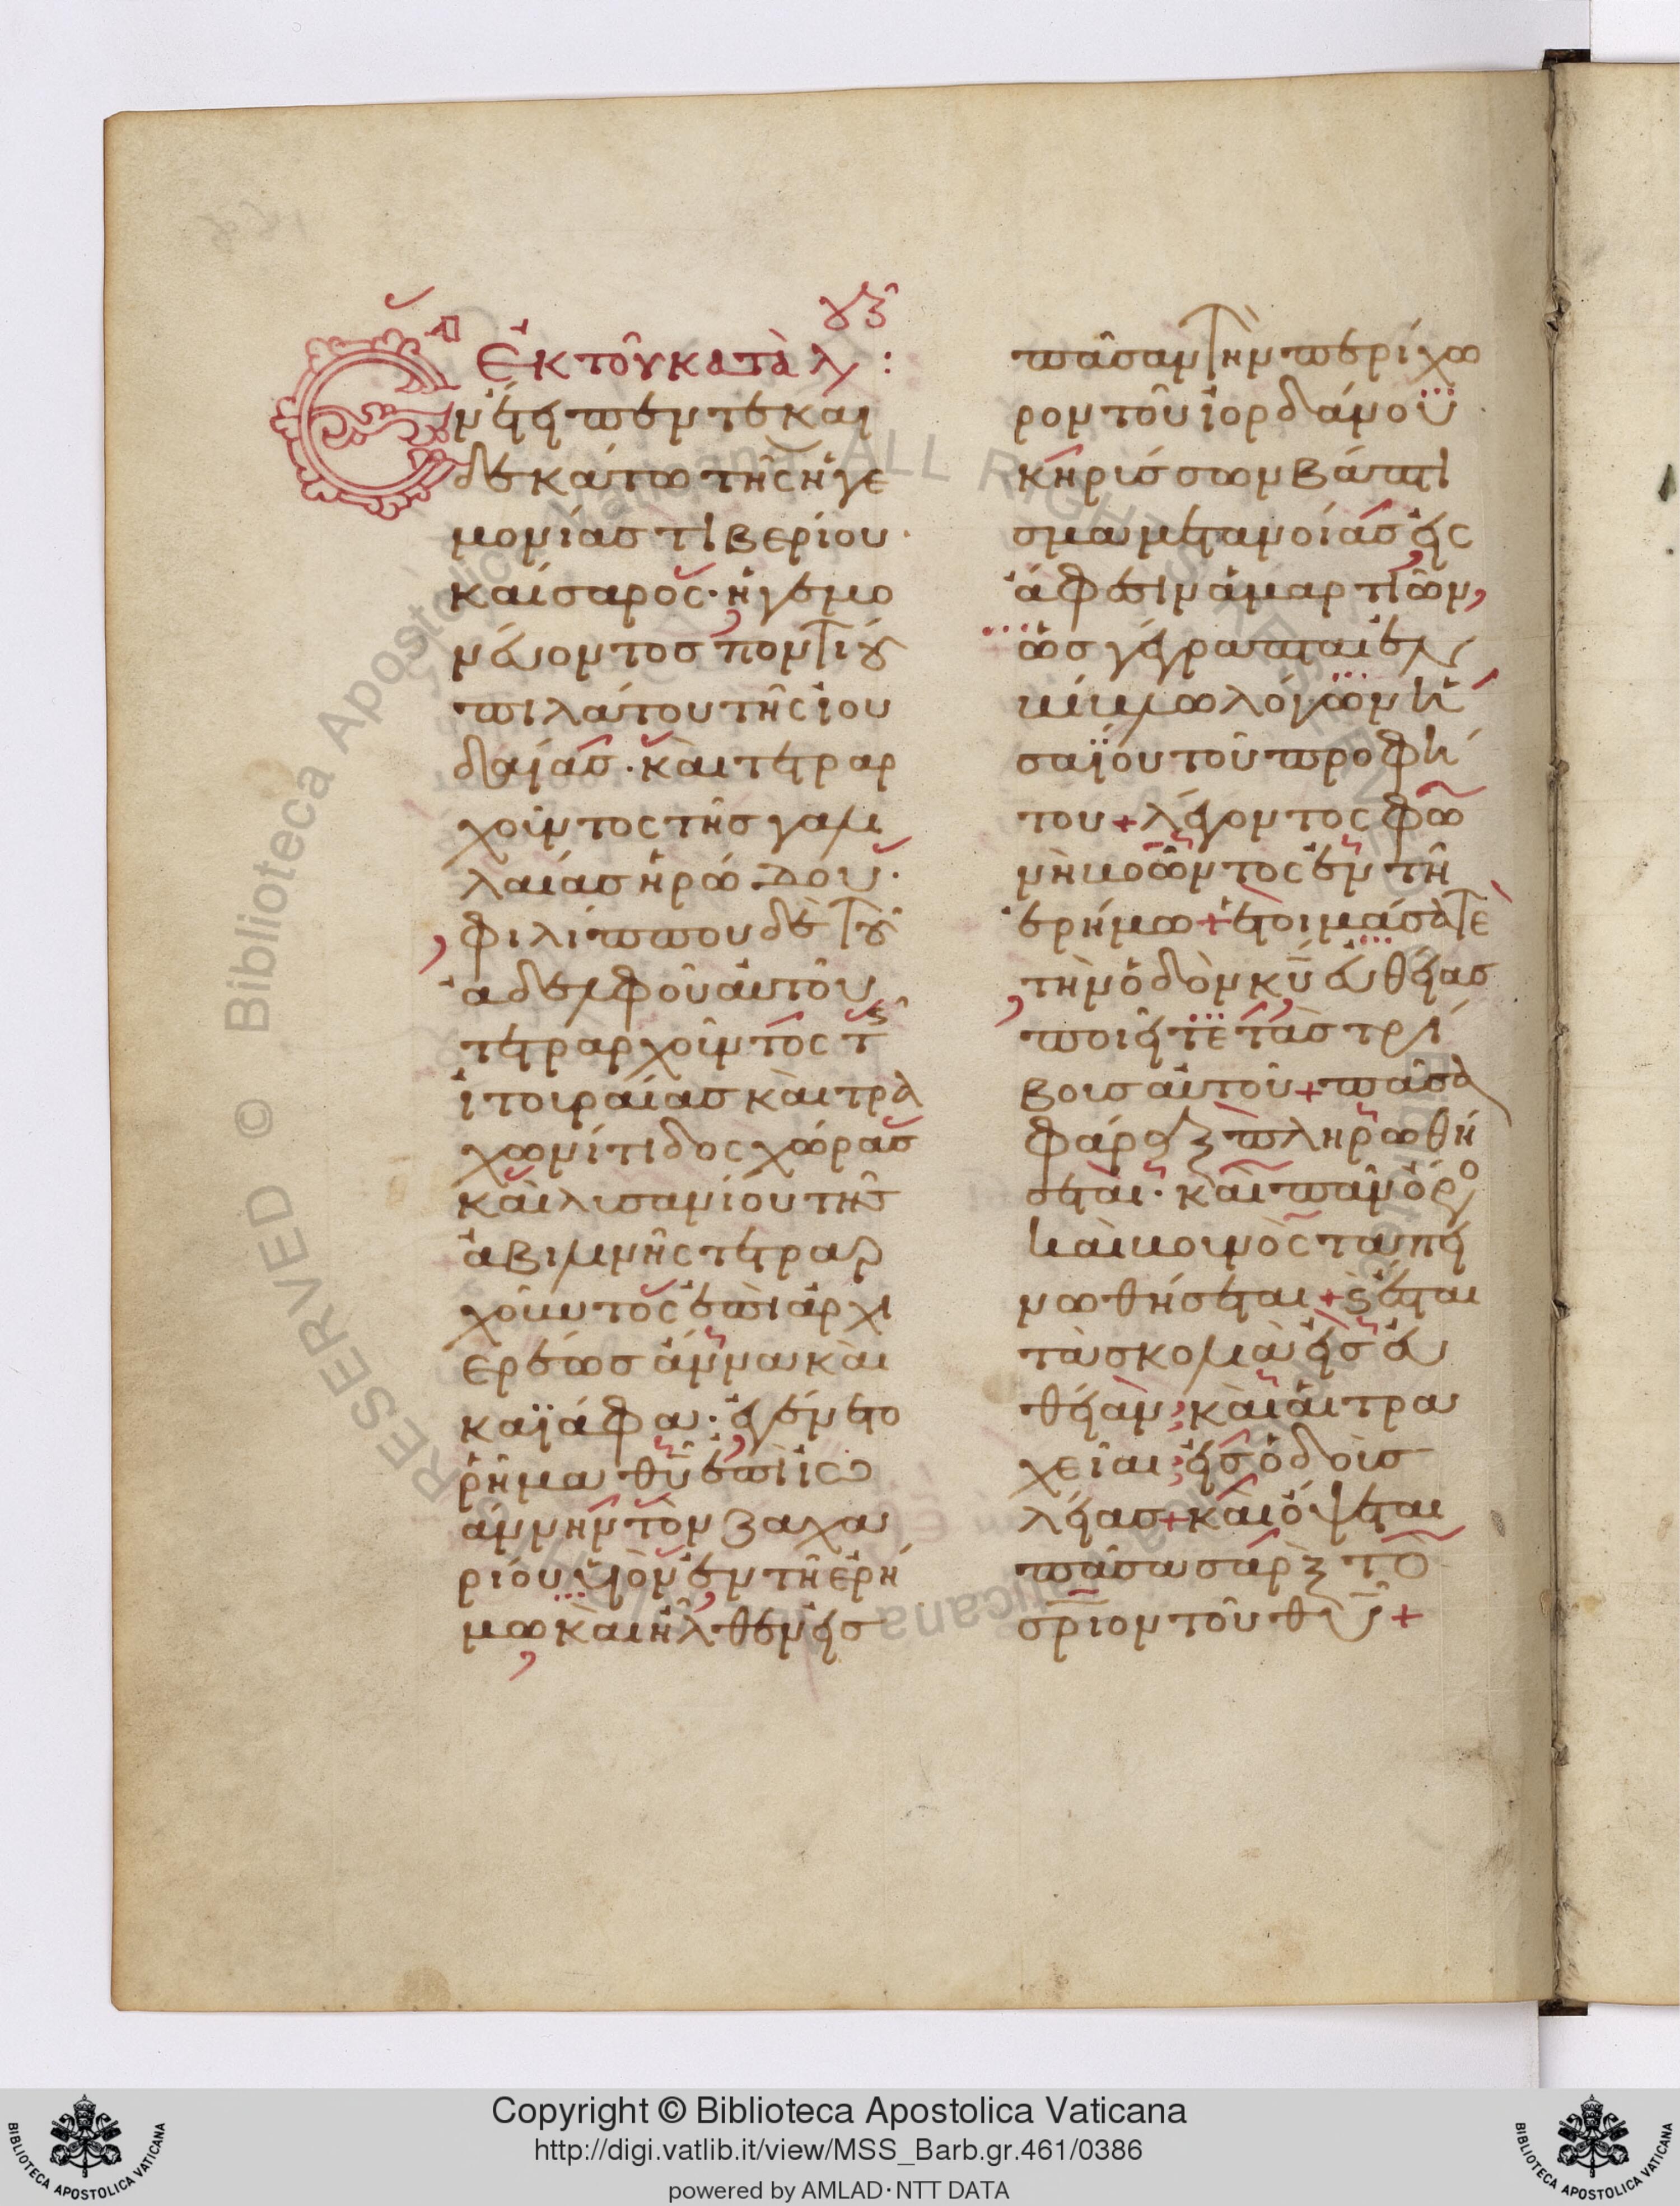 Ἐκ τοῦ κατὰ λ :
Ἐν ἔτει πεντεκαι
δεκάτω τῆς ἡγε
μονίας τιβερίου
καίσαρος· ἡγεμο
νέυοντος ποντίου
πιλάτου τῆς ἰου
δαίας· καὶ τετραρ
χοῦντος τῆς γαλι
λαίας ἡρώδου·
φιλίππου δὲ τοῦ
ἀδελφοῦ αὐτοῦ
τετραρχοῦντος τῆς
ἰτουραίας καὶ τρα
χωνίτιδος χώρας
καὶ λυσανίου τῆς
ἀβιληνῆς τετραρ
χοῦντος ἐπὶ ἀρχι
ερέως ἄννα καὶ
καϊάφα· ἐγένετο
ῥῆμα θῦ ἐπὶ ἰω
άννην τὸν ζαχα
ρίου υἱὸν ἐν τῆ ἐρή
μω καὶ ἦλθεν εἰς
πᾶσαν τὴν περίχω
ρον τοῦ ἰορδάνου
κηρύσσων βάπτι
σμα μετανοίας εἰς
ἄφεσιν ἁμαρτιῶν,
ὡς γέγραπται ἐν
βίβλω λόγων ἡ
σαΐου τοῦ προφή
του + λέγοντος φω
νὴ βοῶντος ἐν τῆ
ἐρήμω + ἑτοιμάσατε
τὴν ὁδὸν κῦ εὐθείας
ποιεῖτε τὰς τρί
βους αὐτοῦ + πᾶσα
φάραγξ πληρωθή
σεται· καὶ πᾶν ὄρο
καὶ βουνὸς ταπει
νωθήσεται + ϛ ἔσται
τὰ σκολιὰ εἰς εὐ
θείαν, καὶ αἱ τρα
χεῖαι, εἰς ὁδοὺς
λείας + καὶ ὄψεται
πᾶσα σὰρξ τὸ
σρ̅ιον τοῦ θῦ +
Copyright © Biblioteca Apostolica Vaticana
http://digi.vatlib.it/view/MSS_Barb.gr.461/0386
powered by AMLAD·NTT DATA